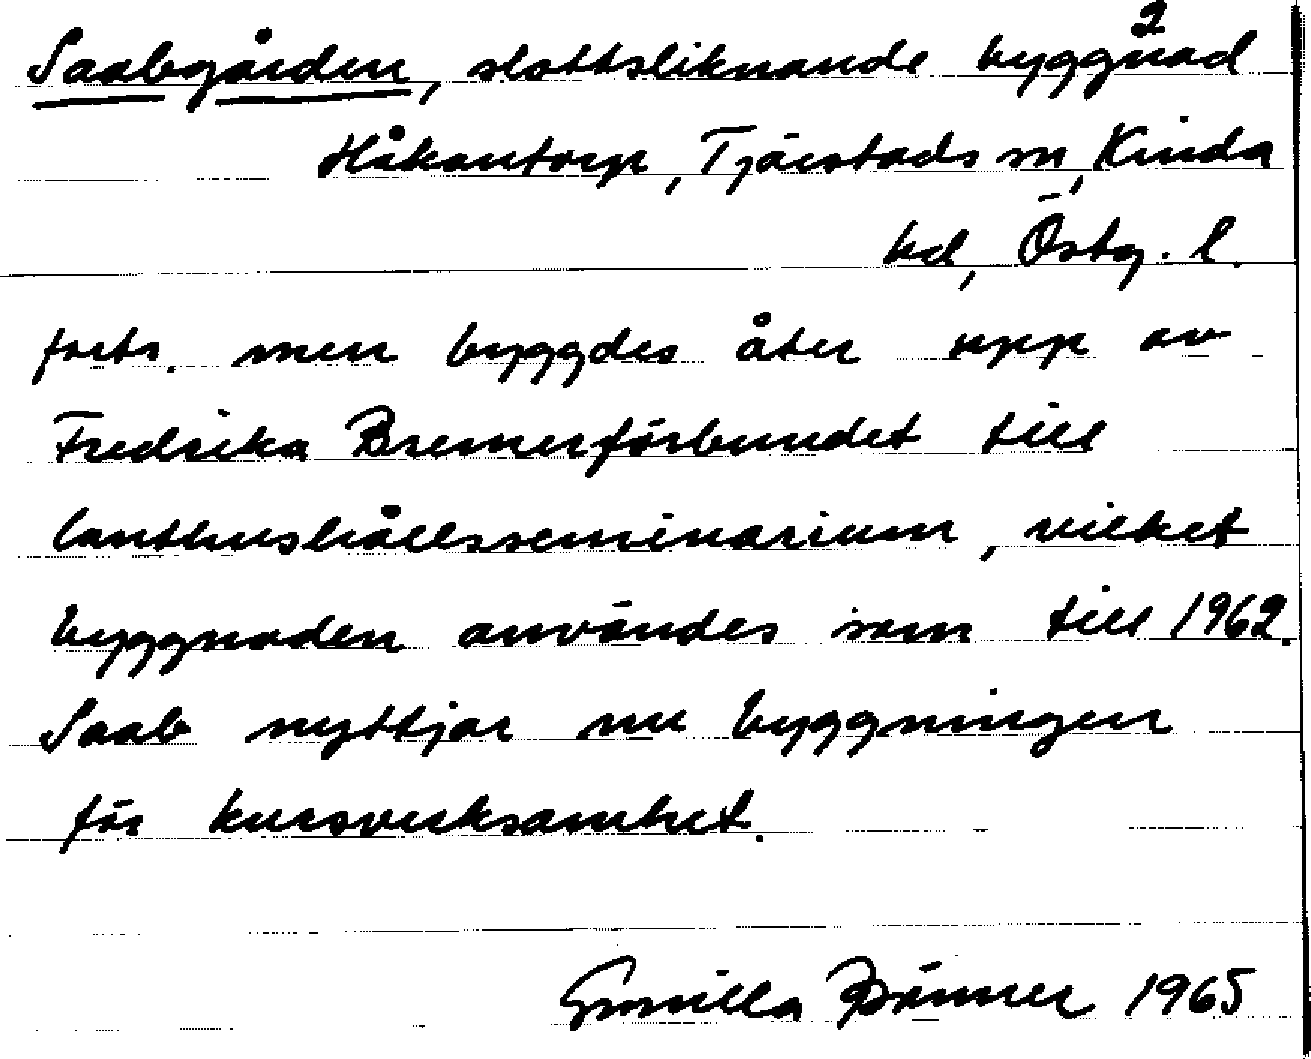 2
Saabgården, slottsliknande byggnad
Håkantorp, Tjärstads sn, Kinda
hd, Östg. l.
forts. men byggdes åter upp av
Fredrika Bremerförbundet till
lanthushållsseminarium, vilket
byggnaden användes som till 1962.
Saab nyttjar nu byggningen
för kursverksamhet.
Gunilla 1965